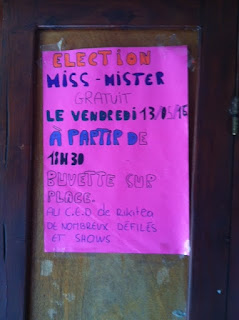 ELECTION
MISS - MISTER
GRATUIT
LE VENDREDI 13/05/16
À PARTIR DE
18H30
BUVETTE SUR
PLACE.
AU C.E.D de Rikitea
DE NOMBREUX DÉFILÉS
ET SHOWS